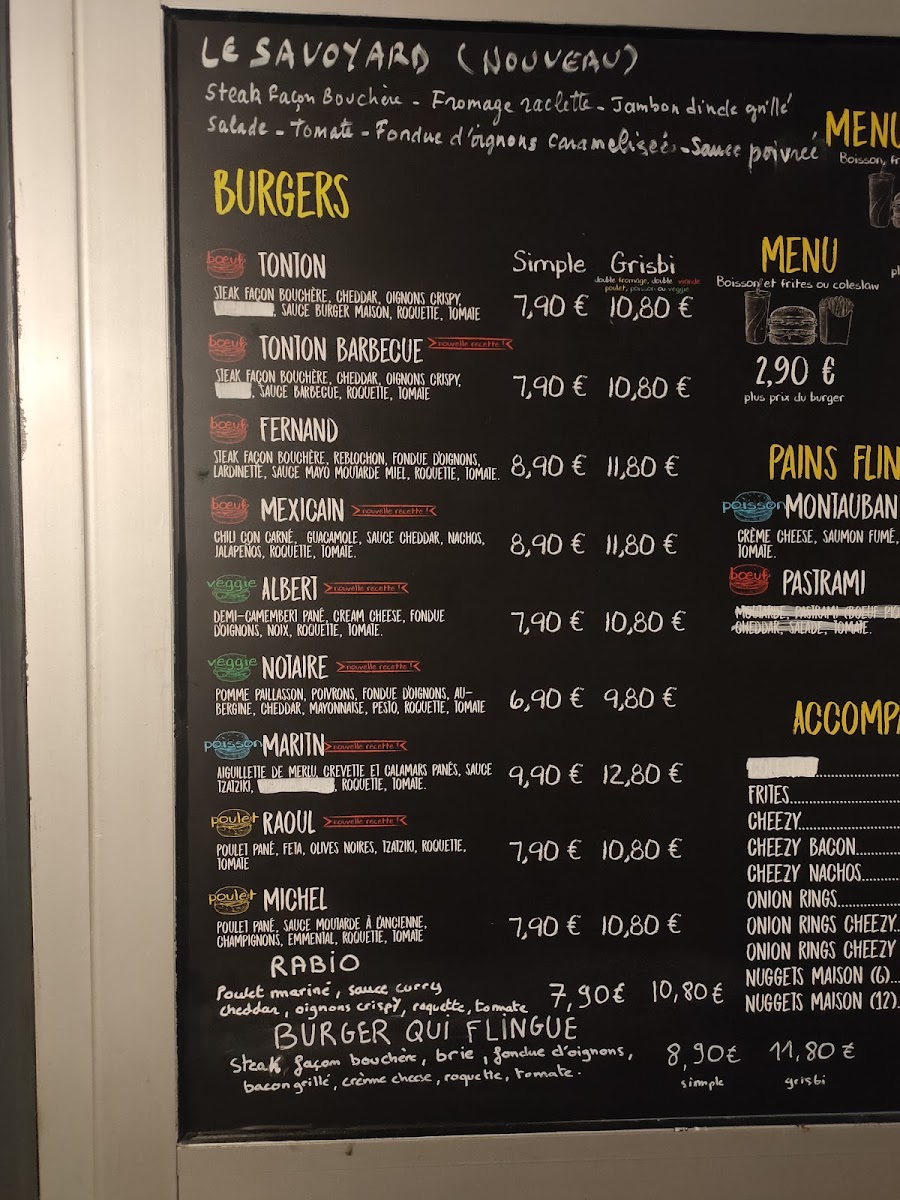 LE SAVOYARD (NOUVEAU)
Steak Façon Bouchère - Fromage raclette - Jambon dinde grillé
Salade - Tomate - Fondue d'oignons caramelisées - Sauce poivreé
BURGERS
Simple Grisbi
double fromage, double viande
poulet, poisson ou veggie
bœuf TONTON
STEAK FAÇON BOUCHÈRE, CHEDDAR, OIGNONS CRISPY,
, SAUCE BURGER MAISON, ROQUETTE, TOMATE
7,90 € 10,80 €
bœuf TONTON BARBECUE nouvelle recette !
STEAK FAÇON BOUCHÈRE, CHEDDAR, OIGNONS CRISPY,
, SAUCE BARBECUE, ROQUETTE, TOMATE
7,90 € 10,80 €
bœuf FERNAND
STEAK FAÇON BOUCHÈRE, REBLOCHON, FONDUE D'OIGNONS,
LARDINETTE, SAUCE MAYO MOUTARDE MIEL, ROQUETTE, TOMATE.
8,90 € 11,80 €
bœuf MEXICAIN nouvelle recette !
CHILI CON CARNÉ, GUACAMOLE, SAUCE CHEDDAR, NACHOS,
JALAPEÑOS, ROQUETTE, TOMATE.
8,90 € 11,80 €
veggie ALBERT nouvelle recette !
DEMI-CAMEMBERT PANÉ, CREAM CHEESE, FONDUE
D'OIGNONS, NOIX, ROQUETTE, TOMATE.
7,90 € 10,80 €
veggie NOTAIRE nouvelle recette !
POMME PAILLASSON, POIVRONS, FONDUE D'OIGNONS, AU-
BERGINE, CHEDDAR, MAYONNAISE, PESTO, ROQUETTE, TOMATE
6,90 € 9,80 €
poisson MARITN nouvelle recette !
AIGUILLETTE DE MERLU, CREVETTE ET CALAMARS PANÉS, SAUCE
TZATZIKI, , ROQUETTE, TOMATE.
9,90 € 12,80 €
poulet RAOUL nouvelle recette !
POULET PANÉ, FETA, OLIVES NOIRES, TZATZIKI, ROQUETTE,
TOMATE
7,90 € 10,80 €
poulet MICHEL
POULET PANÉ, SAUCE MOUTARDE À L'ANCIENNE,
CHAMPIGNONS, EMMENTAL, ROQUETTE, TOMATE
7,90 € 10,80 €
RABIO
Poulet mariné, sauce curry
cheddar, oignons crispy, roquette, tomate
7,90€ 10,80€
BURGER QUI FLINGUE
Steak façon bouchère, brie, fondue d'oignons,
bacon grillé, crème cheese, roquette, tomate.
8,90€ 11,80€
simple grisbi
MENU
Boisson, fr
MENU
Boisson et frites ou coleslaw
2,90 €
plus prix du burger
pl
PAINS FLIN
poisson MONTAUBAN
CRÈME CHEESE, SAUMON FUMÉ,
TOMATE.
bœuf PASTRAMI
MOUTARDE, PASTRAMI (BOEUF PI
CHEDDAR, SALADE, TOMATE.
ACCOMPA
FRITES
CHEEZY
CHEEZY BACON
CHEEZY NACHOS
ONION RINGS
ONION RINGS CHEEZY
ONION RINGS CHEEZY
NUGGETS MAISON (6)
NUGGETS MAISON (12)